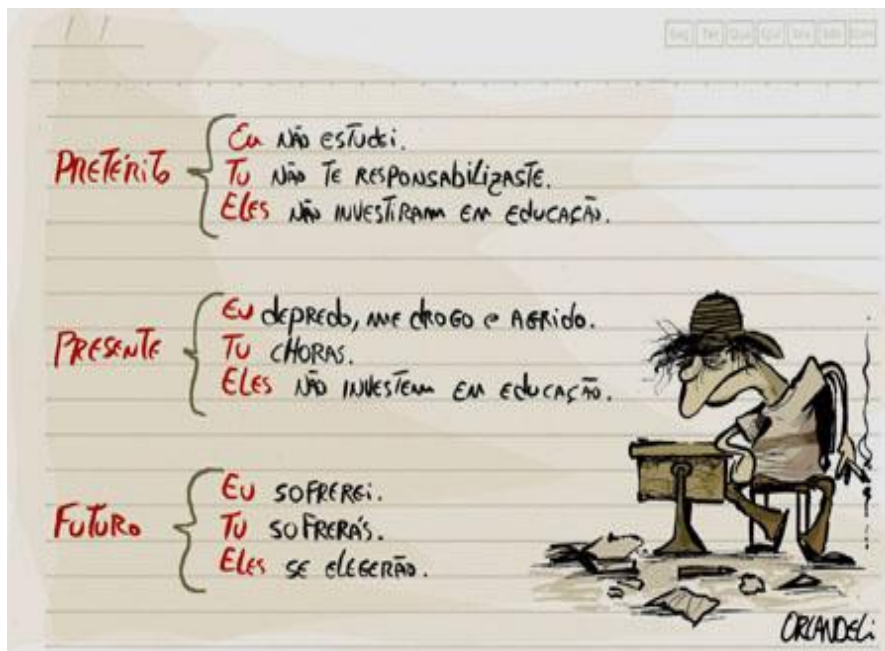 / /
Seg Ter Qua Qui Sex Sáb Dom
PRETÉRITO
Eu NÃO ESTUDEI.
TU NÃO TE RESPONSABILIZASTE.
ELES NÃO INVESTIRAM EM EDUCAÇÃO.
PRESENTE
EU DEPREDO, ME DROGO E AGRIDO.
TU CHORAS.
ELES NÃO INVESTEM EM EDUCAÇÃO.
FUTURO
EU SOFREREI.
TU SOFRERÁS.
ELES SE ELEGERÃO.
ORLANDELI